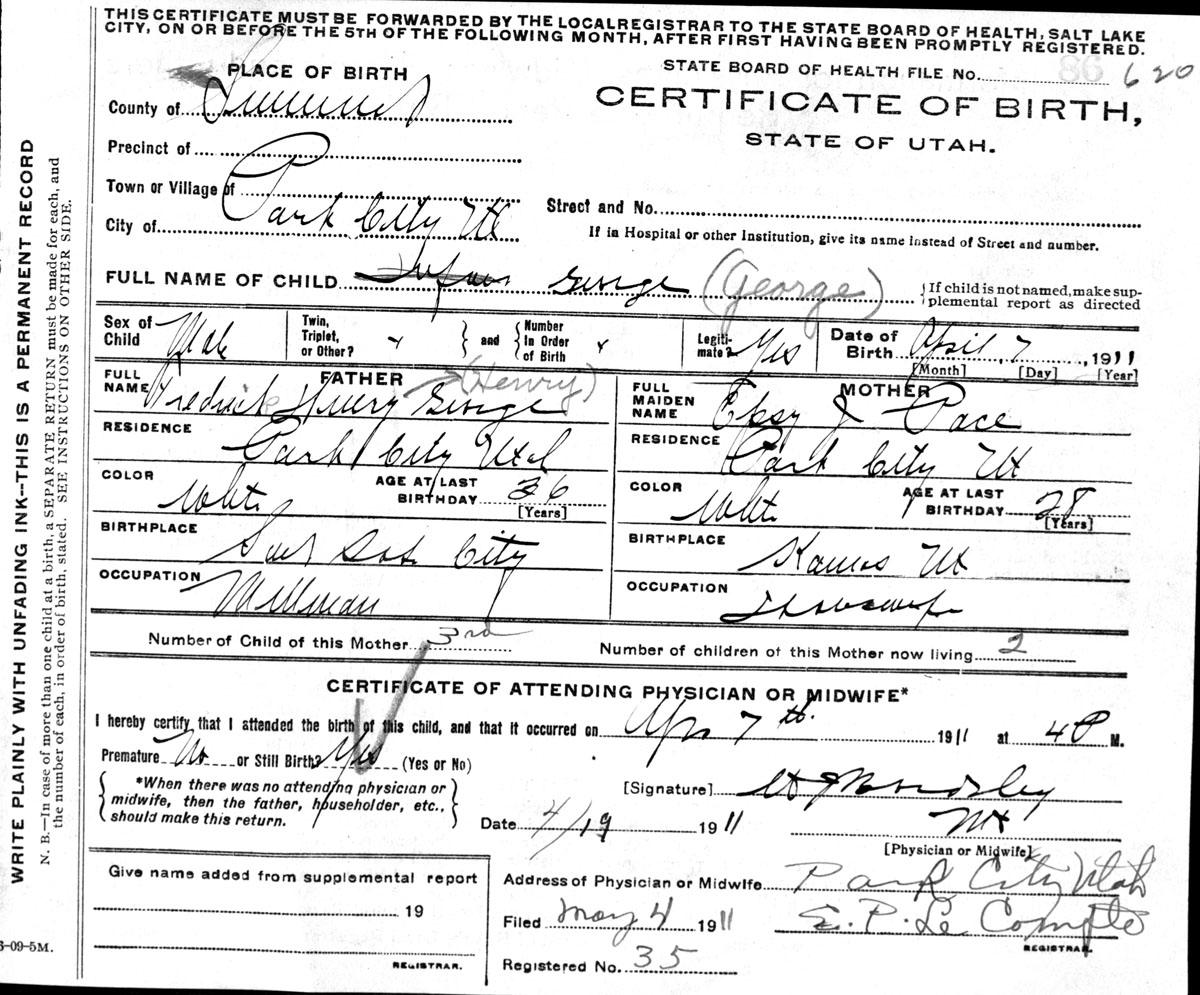 THIS CERTIFICATE MUST BE FORWARDED BY THE LOCAL REGISTRAR TO THE STATE BOARD OF HEALTH, SALT LAKE
CITY, ON OR BEFORE THE 5TH OF THE FOLLOWING MONTH, AFTER FIRST HAVING BEEN PROMPTLY REGISTERED.
WRITE PLAINLY WITH UNFADING INK--THIS IS A PERMANENT RECORD
N. B.—In case of more than one child at a birth, a SEPARATE RETURN must be made for each, and
the number of each, in order of birth, stated. SEE INSTRUCTIONS ON OTHER SIDE.
PLACE OF BIRTH
STATE BOARD OF HEALTH FILE No. 86 620
County of Summit
CERTIFICATE OF BIRTH,
STATE OF UTAH.
Precinct of
Town or Village of
Street and No.
City of Park City Ut
If in Hospital or other Institution, give its name instead of Street and number.
FULL NAME OF CHILD Infant George (George)
{If child is not named, make sup-
plemental report as directed
Sex of Child Male
Twin, Triplet, or Other?
and
Number In Order of Birth
Legiti-mate? Yes
Date of Birth April 7, 1911
[Month] [Day] [Year]
FATHER
FULL NAME Fredrick Henry George (Henry)
MOTHER
FULL MAIDEN NAME Epsy J Pace
RESIDENCE Park City Utah
RESIDENCE Park City Ut
COLOR White
AGE AT LAST BIRTHDAY 36
[Years]
COLOR White
AGE AT LAST BIRTHDAY 28
[Years]
BIRTHPLACE City
BIRTHPLACE Kamas Ut
OCCUPATION Millman
OCCUPATION Housewife
Number of Child of this Mother 3rd
Number of children of this Mother now living 2
CERTIFICATE OF ATTENDING PHYSICIAN OR MIDWIFE*
I hereby certify that I attended the birth of this child, and that it occurred on Apr 7th. 1911 at 4 P M.
Premature No or Still Birth? Yes (Yes or No)
*When there was no attending physician or
midwife, then the father, householder, etc.,
should make this return.
[Signature]
Date 4/19 1911
[Physician or Midwife]
Give name added from supplemental report
19
REGISTRAR.
Address of Physician or Midwife Park City Utah
Filed May 4 1911 E. P. Le Compte
REGISTRAR
Registered No. 35
6-09-5M.